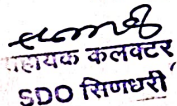 सहायक कलक्टर
SDO सिणधरी